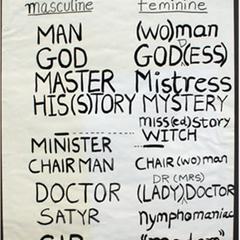 masculine feminine
MAN (WO)MAN
GOD GOD(ESS)
MASTER Mistress
HIS(S)TORY MYSTERY
miss(ed)story
MINISTER WITCH
CHAIRMAN CHAIR(WO)man
DR (MRS)
DOCTOR (LADY)DOCTOR
SATYR nymphomaniac
SIR "madam"